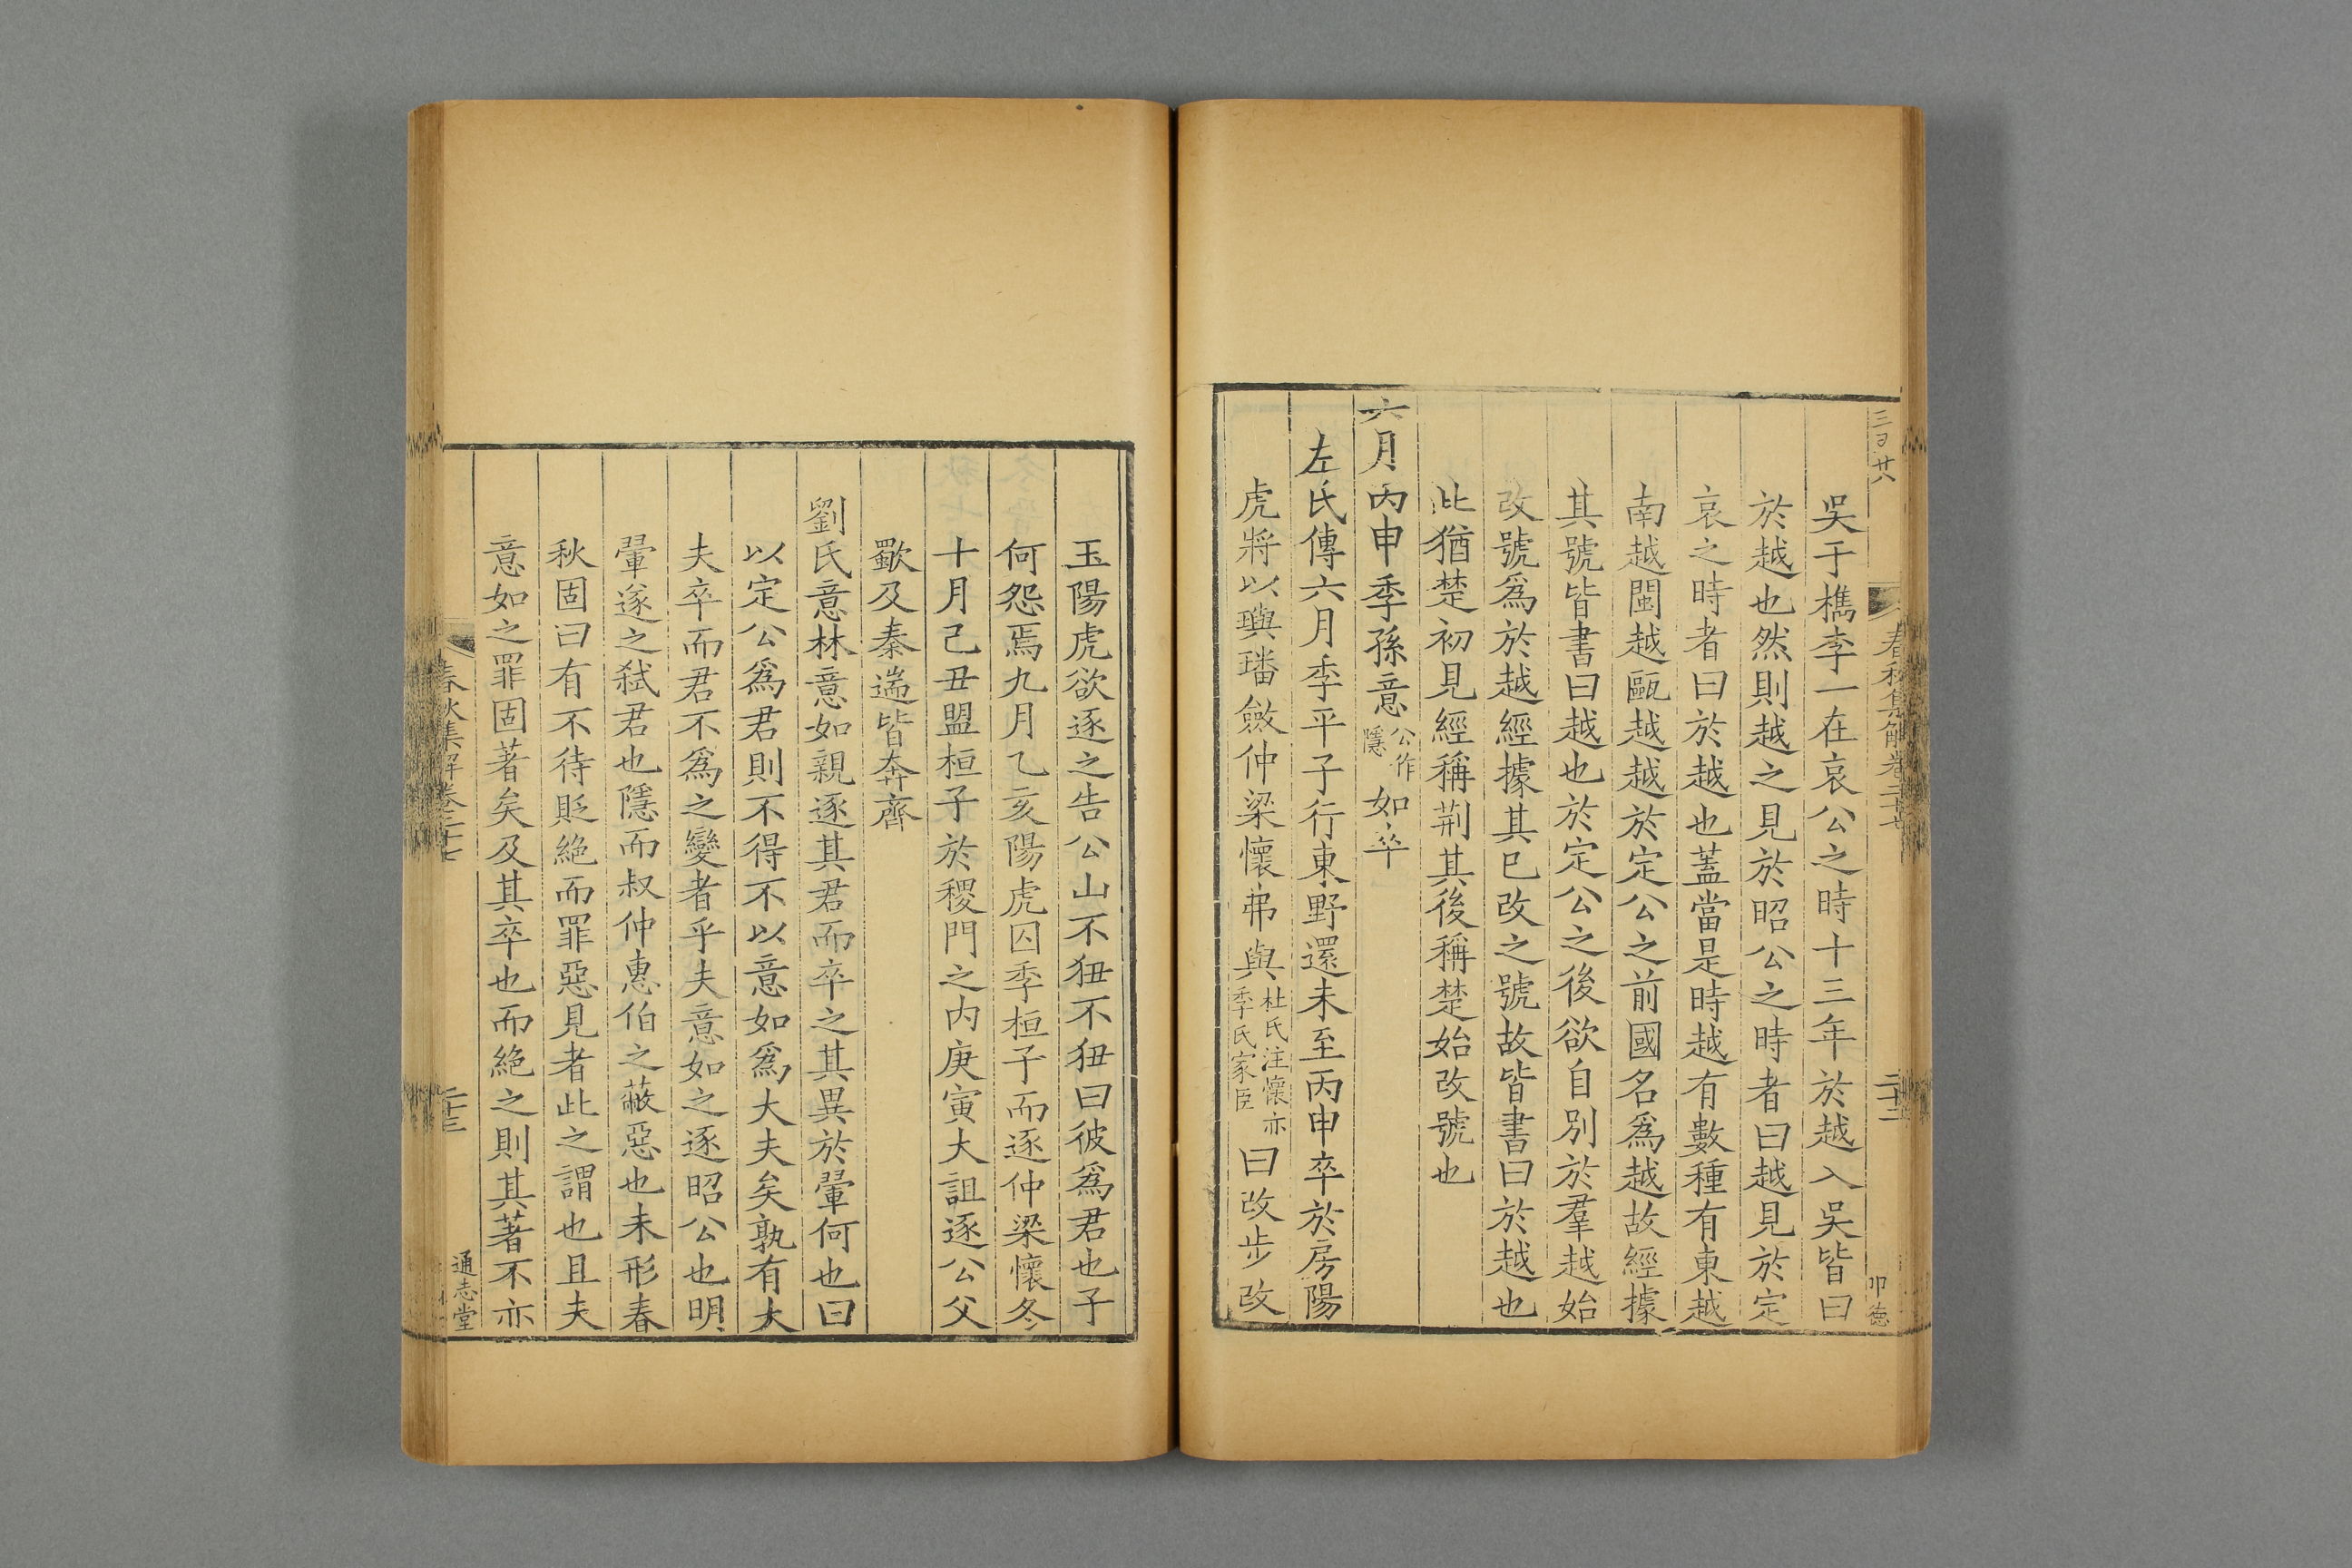 春秋集解卷二十七
二十二
吳于檇李一在哀公之時十三年於越入吳皆曰
於越也然則越之見於昭公之時者曰越見於定
哀之時者曰於越也蓋當是時越有數種有東越
南越閩越甌越越於定公之前國名爲越故經據
其號皆書曰越也於定公之後欲自別於羣越始
改號爲於越經據其已改之號故皆書曰於越也
此猶楚初見經稱荆其後稱楚始改號也
六月丙申季孫意公作隱如卒
左氏傳六月季平子行東野還未至丙申卒於房陽
虎將以璵璠斂仲梁懷弗與杜氏注懷亦季氏家臣曰改步改
玉陽虎欲逐之告公山不狃不狃曰彼爲君也子
何怨焉九月乙亥陽虎囚季桓子而逐仲梁懷冬
十月己丑盟桓子於稷門之内庚寅大詛逐公父
歜及秦遄皆奔齊
劉氏意林意如親逐其君而卒之其異於翬何也曰
以定公爲君則不得不以意如爲大夫矣孰有大
夫卒而君不爲之變者乎夫意如之逐昭公也明
翬遂之弒君也隱而叔仲惠伯之蔽惡也未形春
秋固曰有不待貶絶而罪惡見者此之謂也且夫
意如之罪固著矣及其卒也而絶之則其著不亦
春秋集解卷二十七
二十三
通志堂